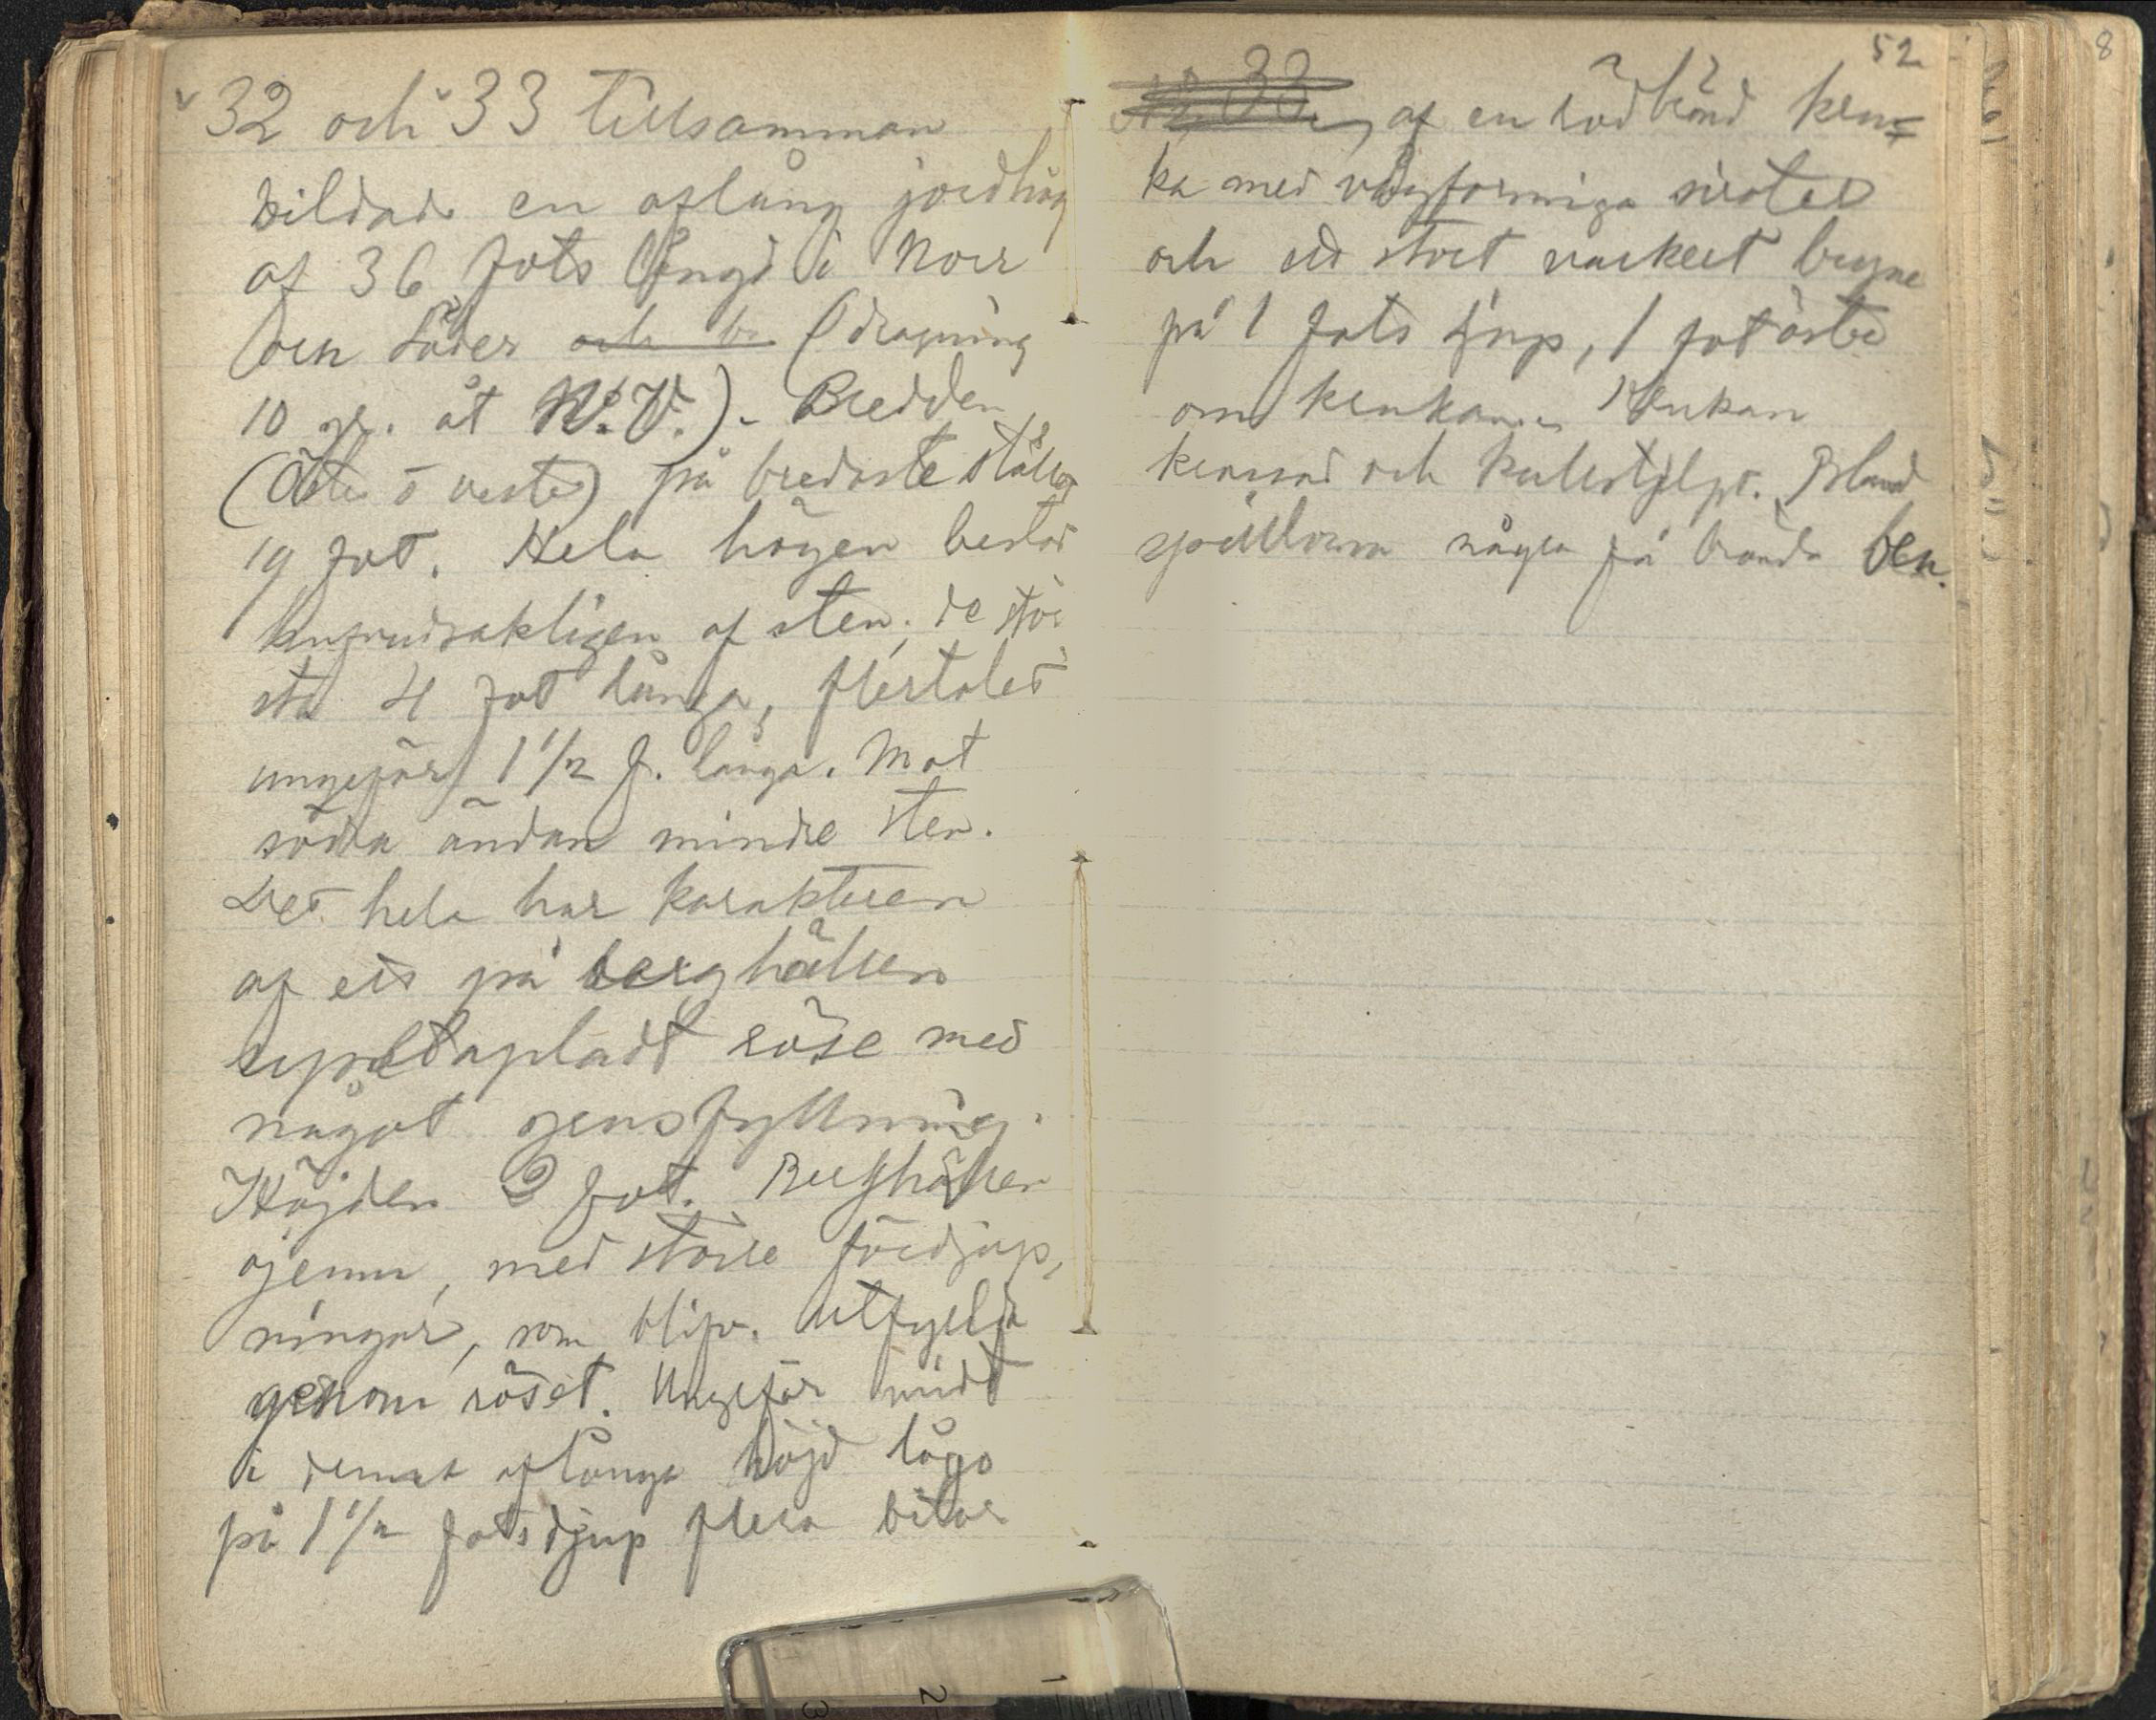 32 och 33 Tillsamman
bildade en aflång jordhög
af 36 fots längd i Norr
och Söder och br (dragning
10 gr. åt N.V.). Bredden
(Öster o vester) på bredaste ställe
19 fot. Hela högen bestod
hufvudsakligen af sten; de stör
sta 4 fot långa, flertalet
ungefär 1 1/2 f. långa. Mot
södra ändan mindre sten.
Det hela har karakteren
af ett på berghällen
uppstapladt röse med
något grusfyllning.
Höjden 3 fot. Berghällen
ojemn, med större fördjup,
ningar, som blifv. utfylda
genom röset. Ungefär midt
i denna aflånga höjd lågo
på 1 1/2 fots djup flera bitar
52
No 33 af en rödbränd kru=
ka med vågformiga sirater
och ett stort vackert bryne
på 1 fots djup, 1 fot öster
om krukan. Krukan
krossad och kullstjelpt. Bland
spillrorna några få brända ben.
8